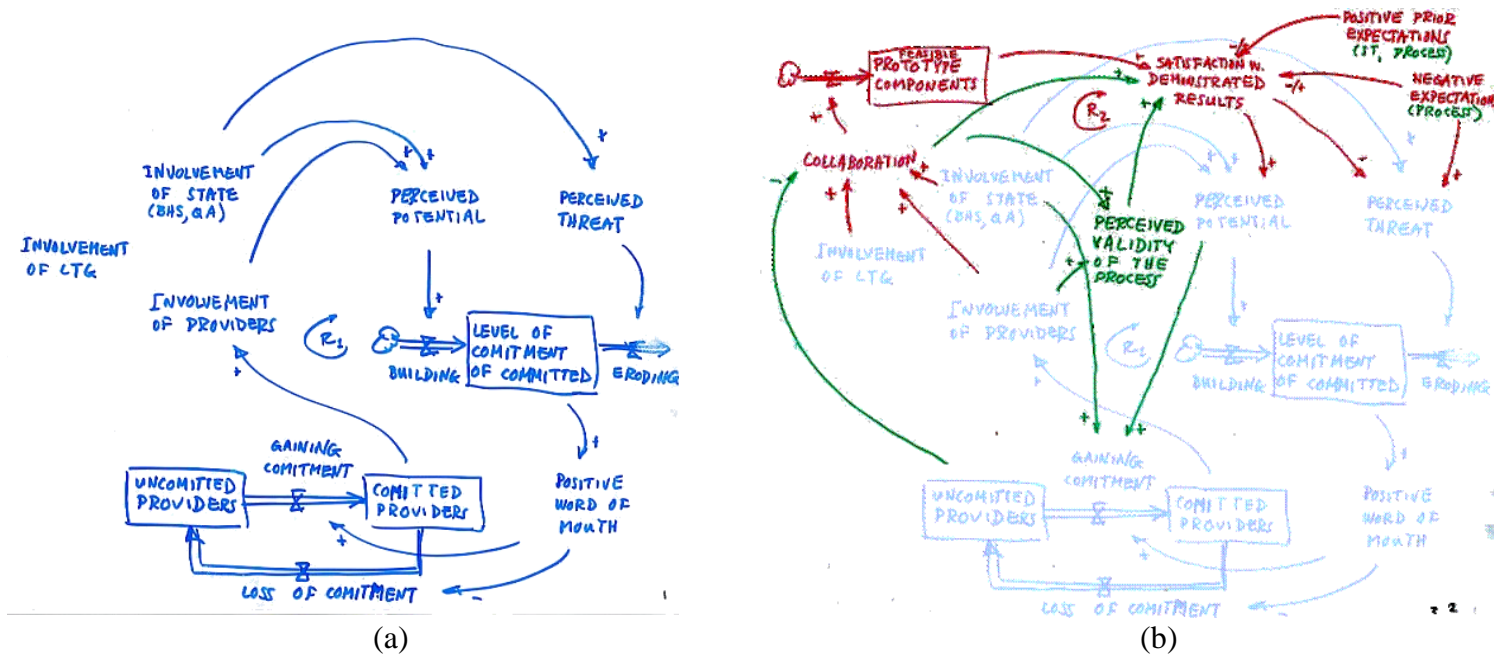 INVOLVEMENT
OF STATE
(BHS, QA)
PERCEIVED
POTENTIAL
PERCEIVED
THREAT
INVOLVEMENT
OF LTG
INVOLVEMENT
OF PROVIDERS
R1
BUILDING
LEVEL OF
COMITMENT
OF COMMITTED
ERODING
GAINING
COMITMENT
UNCOMITTED
PROVIDERS
COMITTED
PROVIDERS
POSITIVE
WORD OF
MOUTH
LOSS OF COMITMENT
+
+
+
+
+
+
+
+
-
1
(a)
FEASIBLE
PROTOTYPE
COMPONENTS
SATISFACTION W.
DEMONSTRATED
RESULTS
POSITIVE PRIOR
EXPECTATIONS
(ST, PROCESS)
NEGATIVE
EXPECTATION
(PROCESS)
R2
COLLABORATION
INVOLVEMENT
OF STATE
(BHS, QA)
PERCEIVED
VALIDITY
OF THE
PROCESS
PERCEIVED
POTENTIAL
PERCEIVED
THREAT
INVOLVEMENT
OF LTG
INVOLVEMENT
OF PROVIDERS
R1
BUILDING
LEVEL OF
COMITMENT
OF COMMITTED
ERODING
GAINING
COMITMENT
UNCOMITTED
PROVIDERS
COMITTED
PROVIDERS
POSITIVE
WORD OF
MOUTH
LOSS OF COMITMENT
-/+
-/+
+
+
+
+
+
-
+
-
+
+
+
+
+
+
+
2
(b)